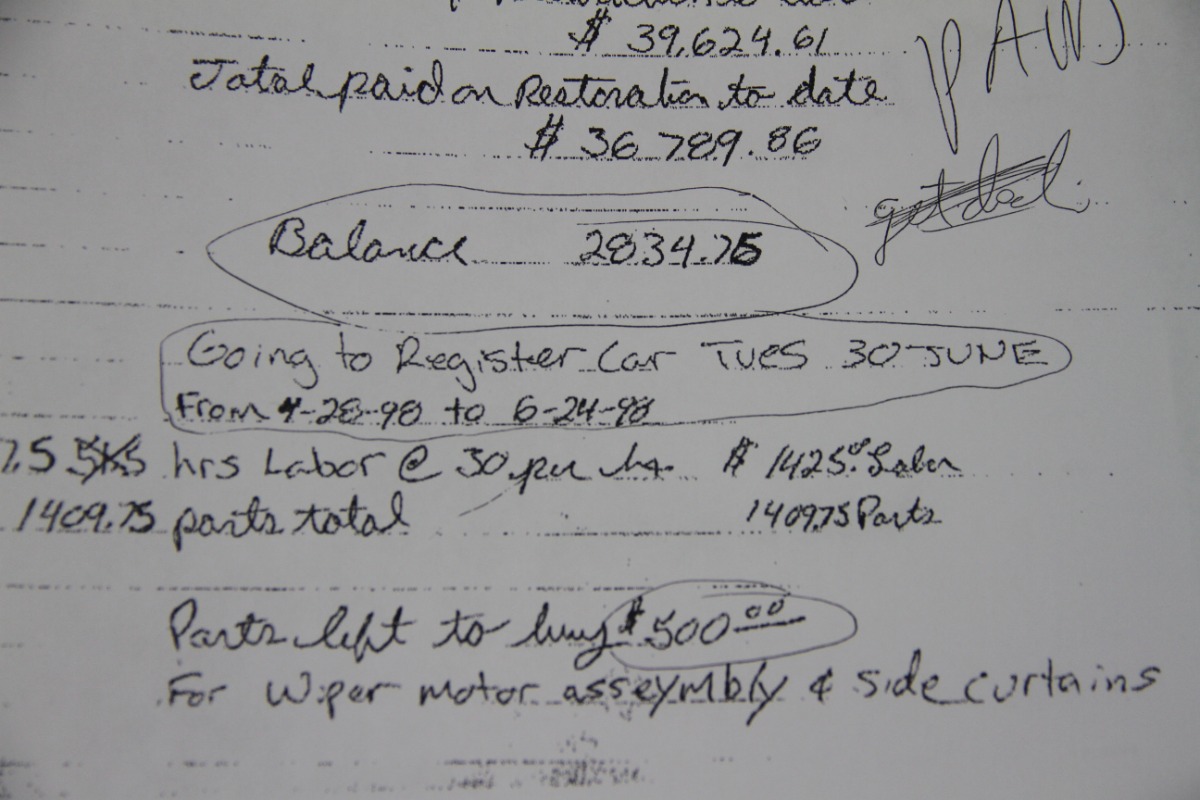 $ 39,624.61
Total paid on Restoration to date
$ 36789.86
PAID
Balance 2834.75
Going to Register Car TUES 30 JUNE
From 4-28-98 to 6-24-98
7.5 hrs Labor @ 30 per hr. $ 1425.00 Labor
1409.75 parts total 1409.75 Parts
Parts left to buy $500.00
For Wiper motor asseymbly & side curtains